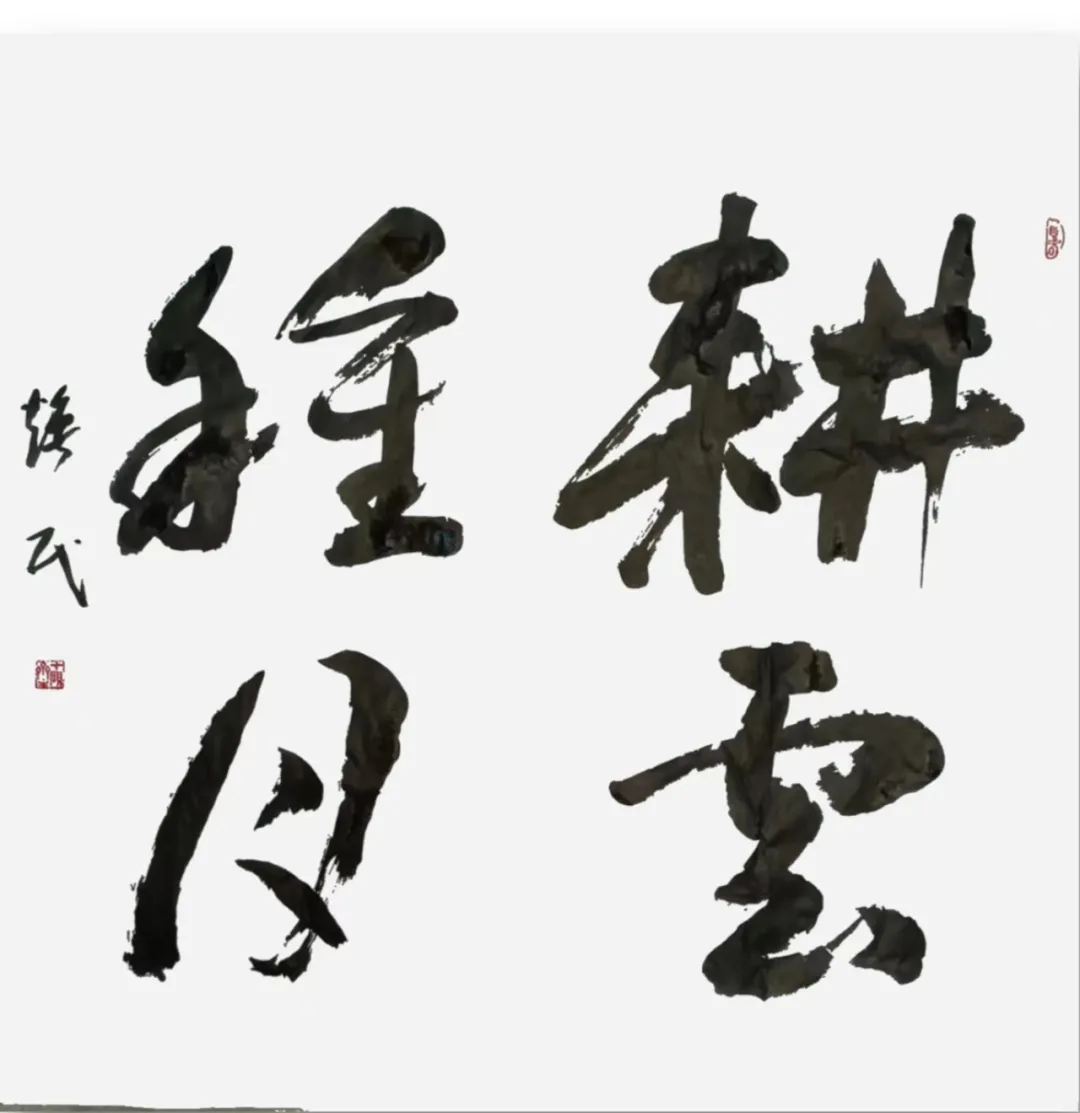 耕雲
種月